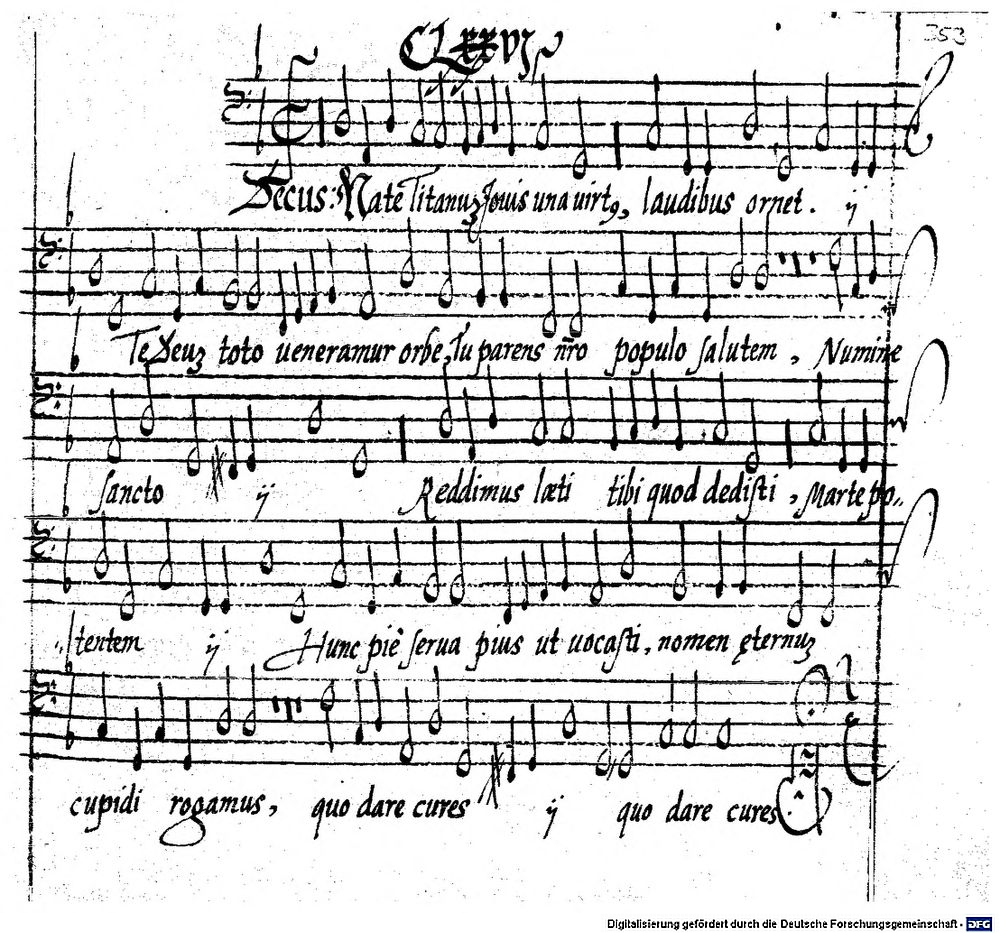 353
CLXXVI
Decus: Natē Titanuʒ Jouis una uirt9, laudibus ornet. ij
Te Deuʒ toto ueneramur orbe, Tu parens n̄ro populo salutem, Numine
sancto ij Reddimus læti tibi quod dedisti, Marte po..
tentem ij Hunc piē serua pius ut uocasti, nomen ęternuʒ
cupidi rogamus, quo dare cures ij quo dare cures.
Digitalisierung gefördert durch die Deutsche Forschungsgemeinschaft - DFG